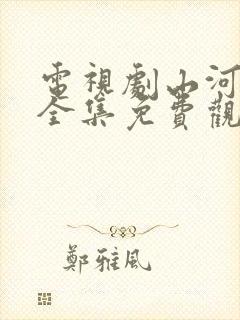 電視劇山河
全集免費觀
鄭雅風